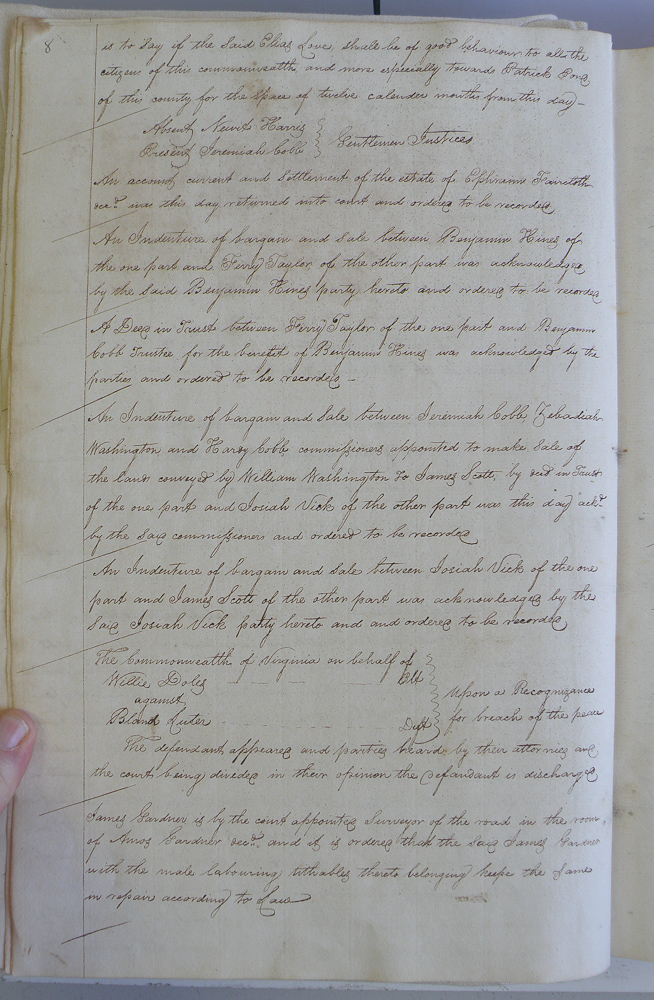 8
is to say if the said Elias Love, shall be of good behaviour to all the
citizens of this commonwealth, and more especially towards Patrick
of this county for the space of twelve calender months from this day—
Absent Newit Harris
Present Jeremiah Cobb } Gentlemen Justices
An account current and Settlement of the estate of Ephraim
decd. was this day returned into court and ordered to be recorded
An Indenture of bargain and sale between Benjamin Hines of
the one part and Ferry Taylor of the other part was acknowledged
by the said Benjamin Hines party hereto and ordered to be recorded
A Deed in Trust between Ferry Taylor of the one part and Benjamin
Cobb Trustee for the benefit of Benjamin Hines was acknowledged by the
parties and ordered to be recorded —
An Indenture of bargain and sale between Jeremiah Cobb, Zebadiah
Washington and Hardy Cobb commissioners appointed to make sale of
the land conveyed by William Washington to James Scott, by deed in Trust
of the one part and Josiah Vick of the other part was this day ackd.
by the said commissioners and ordered to be recorded
An Indenture of bargain and sale between Josiah Vick of the one
part and James Scott of the other part was acknowledged by the
said Josiah Vick party hereto and and ordered to be recorded
The Commonwealth of Virginia on behalf of
Willie Doles Plt
against
Bland Luter Deft
} Upon a Recognizance
for breach of the peace
The defendant appeared and parties heard by their attornies and
the court being divided in their opinion the Defandant is discharged
James Gardner is by the court appointed Surveyor of the road in the room
of Amos Gardner decd. and it is ordered that the said James Gardner
with the male labouring tithables thereto belonging keepe the same
in repair according to Law